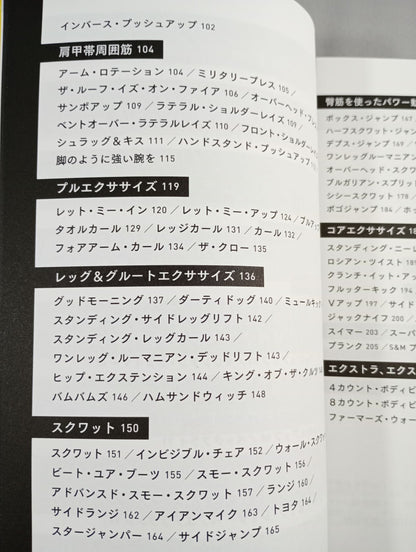 インバース・プッシュアップ 102
肩甲帯周囲筋 104
アーム・ローテーション 104／ミリタリープレス 105／
ザ・ルーフ・イズ・オン・ファイア 106／オーバーヘッド・プレ
サンボアップ 109／ラテラル・ショルダーレイズ 109／
ベントオーバー・ラテラルレイズ 110／フロント・ショルダーレイ
シュラッグ＆キス 111／ハンドスタンド・プッシュアップ
脚のように強い腕を 115
プルエクササイズ 119
レット・ミー・イン 120／レット・ミー・アップ 124／プルアッ
タオルカール 129／レッジカール 131／カール 132／
フォアアーム・カール 134／ザ・クロー 135
レッグ＆グルートエクササイズ 136
グッドモーニング 137／ダーティドッグ 140／ミュールキック
スタンディング・サイドレッグリフト 142／
スタンディング・レッグカール 143／
ワンレッグ・ルーマニアン・デッドリフト 143／
ヒップ・エクステンション 144／キング・オブ・ザ・クルツ
バムバムズ 146／ハムサンドウィッチ 148
スクワット 150
スクワット 151／インビジブル・チェア 152／ウォール・スクワ
ビート・ユア・ブーツ 155／スモー・スクワット 156／
アドバンスド・スモー・スクワット 157／ランジ 160／
サイドランジ 162／アイアンマイク 163／トヨタ 164／
スタージャンパー 164／サイドジャンプ 165
臀筋を使ったパワー動
ボックス・ジャンプ 167
ハーフスクワット・ジャン
デプス・ジャンプ 169／
ワンレッグルーマニアン
オーバーヘッド・スクワ
ブルガリアン・スプリッ
シシースクワット 178／
ポゴジャンプ 184／ホ
コアエクササイズ 18
スタンディング・ニーレ
ロシアン・ツイスト 189
クランチ・イット・アッ
フルッターキック 194／
Vアップ 197／サイド
ジャックナイフ 200／
スイマー 203／スーパ
プランク 205／S&M プ
エクストラ、エクス
4カウント・ボディビ
8カウント・ボディビ
ファーマーズ・ウォー